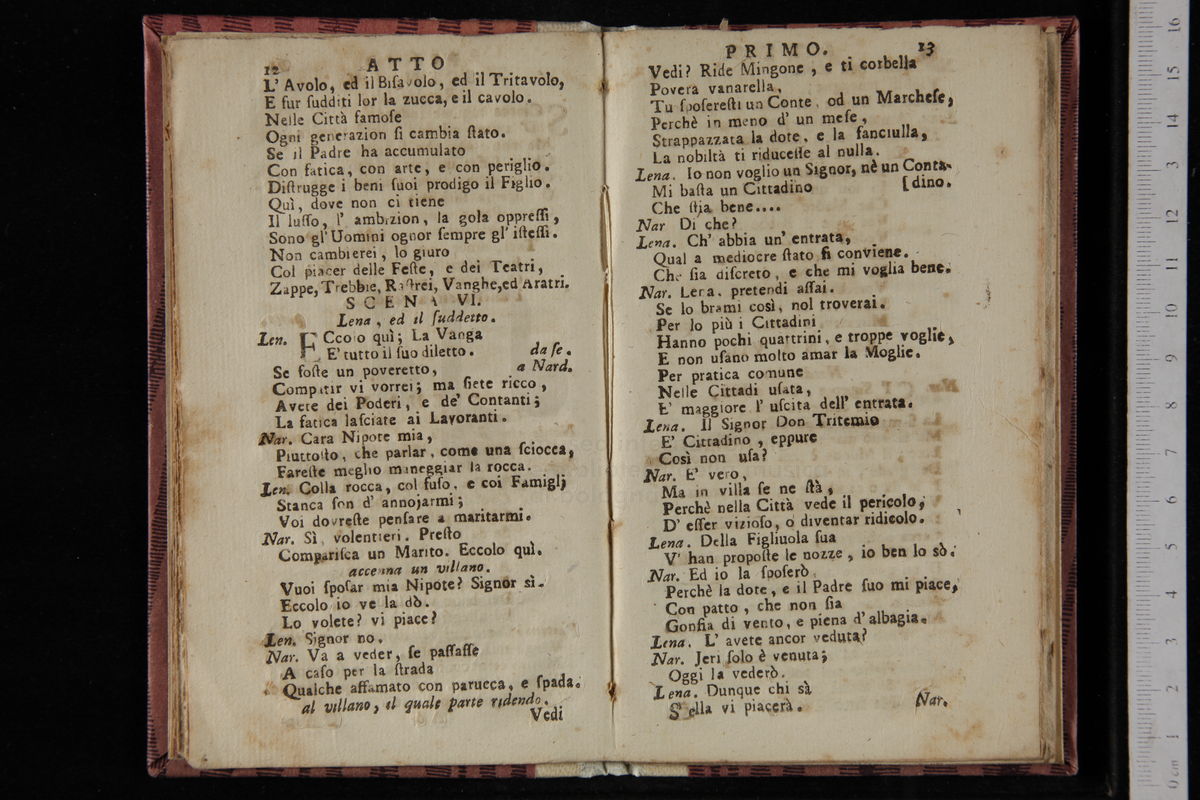 12 ATTO
L' Avolo, ed il Biſavolo, ed il Tritavolo,
E fur ſudditi lor la zucca, e il cavolo.
Nelle Città famoſe
Ogni generazion ſi cambia ſtato.
Se il Padre ha accumulato
Con fatica, con arte, e con periglio.
Diſtrugge i beni ſuoi prodigo il Figlio.
Quì, dove non ci tiene
Il luſſo, l' ambizion, la gola oppreſſi,
Sono gl' Uomini ognor ſempre gl' iſteſſi.
Non cambierei, lo giuro
Col piacer delle Feſte, e dei Teatri,
Zappe, Trebbie, Raſtrei, Vanghe, ed Aratri.
SCENA VI.
Lena, ed il ſuddetto.
Len. ECcolo quì; La Vanga
E' tutto il ſuo diletto. da ſe.
Se foſte un poveretto, a Nard.
Compatir vi vorrei; ma ſiete ricco,
Avete dei Poderi, e de' Contanti;
La fatica laſciate ai Lavoranti.
Nar. Cara Nipote mia,
Piuttoſto, che parlar, come una ſciocca,
Fareſte meglio maneggiar la rocca.
Len. Colla rocca, col fuſo, e coi Famiglj
Stanca ſon d' annojarmi;
Voi dovreſte penſare a maritarmi.
Nar. Sì, volentieri. Preſto
Compariſca un Marito. Eccolo quì.
accenna un villano.
Vuoi ſpoſar mia Nipote? Signor sì.
Eccolo io ve la dò.
Lo volete? vi piace?
Len. Signor no.
Nar. Va a veder, ſe paſſaſſe
A caſo per la ſtrada
Qualche affamato con parucca, e ſpada.
al villano, il quale parte ridendo.
Vedi
PRIMO. 13
Vedi? Ride Mingone, e ti corbella
Povera vanarella,
Tu ſpoſereſti un Conte, od un Marcheſe,
Perchè in meno d' un meſe,
Strappazzata la dote, e la fanciulla,
La nobiltà ti riduceſſe al nulla.
Lena. Io non voglio un Signor, nè un Conta-
Mi baſta un Cittadino [dino.
Che ſtia bene....
Nar Di che?
Lena. Ch' abbia un' entrata,
Qual a mediocre ſtato ſi conviene.
Che ſia diſcreto, e che mi voglia bene.
Nar. Lena, pretendi aſſai.
Se lo brami così, nol troverai.
Per lo più i Cittadini
Hanno pochi quattrini, e troppe voglie,
E non uſano molto amar la Moglie.
Per pratica comune
Nelle Cittadi uſata,
E' maggiore l' uſcita dell' entrata.
Lena. Il Signor Don Tritemio
E' Cittadino, eppure
Così non uſa?
Nar. E' vero,
Ma in villa ſe ne ſtà,
Perchè nella Città vede il pericolo,
D' eſſer vizioſo, o diventar ridicolo.
Lena. Della Figliuola ſua
V' han propoſte le nozze, io ben lo sò.
Nar. Ed io la ſpoſerò,
Perchè la dote, e il Padre ſuo mi piace,
Con patto, che non ſia
Gonfia di vento, e piena d' albagia.
Lena. L' avete ancor veduta?
Nar. Jeri ſolo è venuta;
Oggi la vederò.
Lena. Dunque chi sà
S' ella vi piacerà.
Nar.